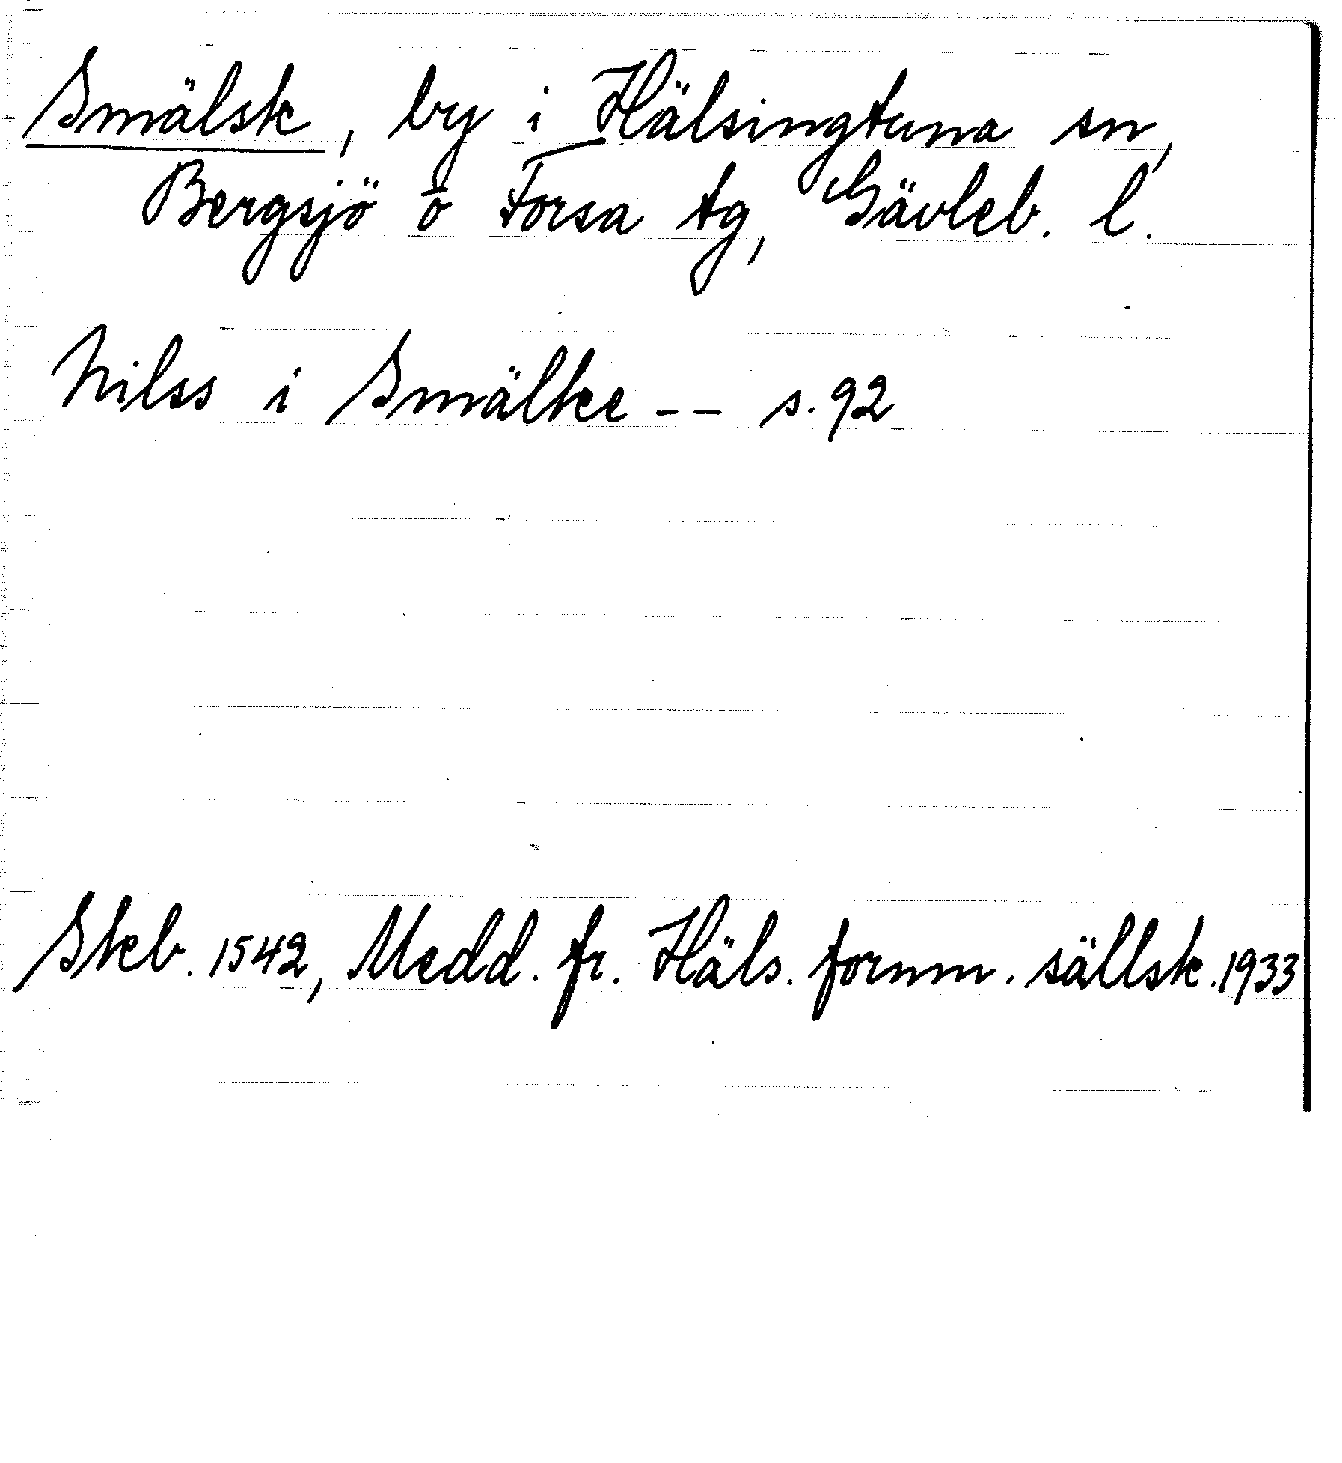 Smälsk, by i Hälsingtuna sn,
Bergsjö o Forsa tg, Gävleb. l.
Nilss i Smälke -- s. 92
Skeb. 1542, Medd. fr. Häls. fornm. sällsk. 1933